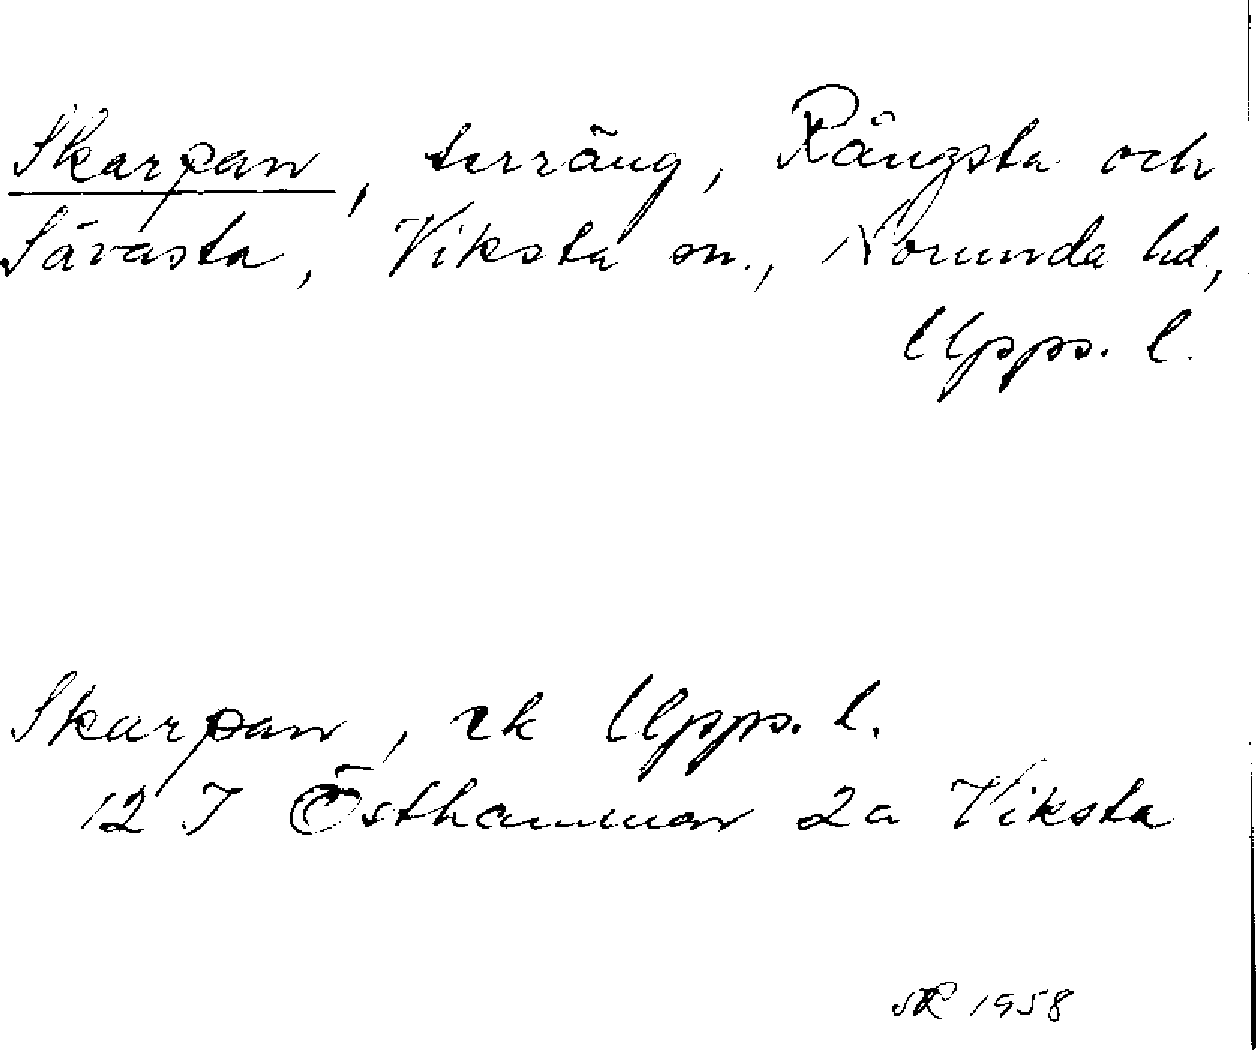 Skarpan, terräng, Rångsta och
Sävasta, Viksta sn., Norunda hd,
Upps. l.
Skarpan, rk Upps. l.
12 I Östhammar 2a Viksta
1958